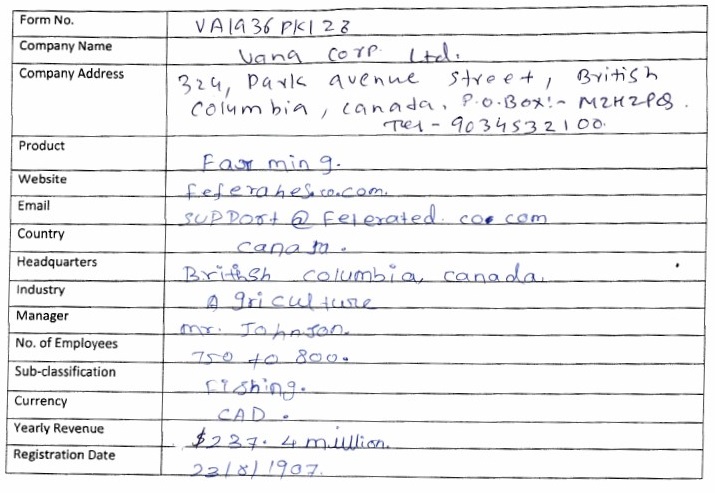 Form No. VA1936PK128
Company Name Vana Corp. Ltd.
Company Address 324, Park avenue street, British
Columbia, Canada. P.O.Box:- M2H2P8.
Tel - 9034532100.
Product Farming.
Website
Email support@
Country Canada.
Headquarters British Columbia, Canada.
Industry Agriculture
Manager Mr. Johnson.
No. of Employees 750 to 800.
Sub-classification Fishing.
Currency CAD.
Yearly Revenue $237.4 million.
Registration Date 23/8/1907.